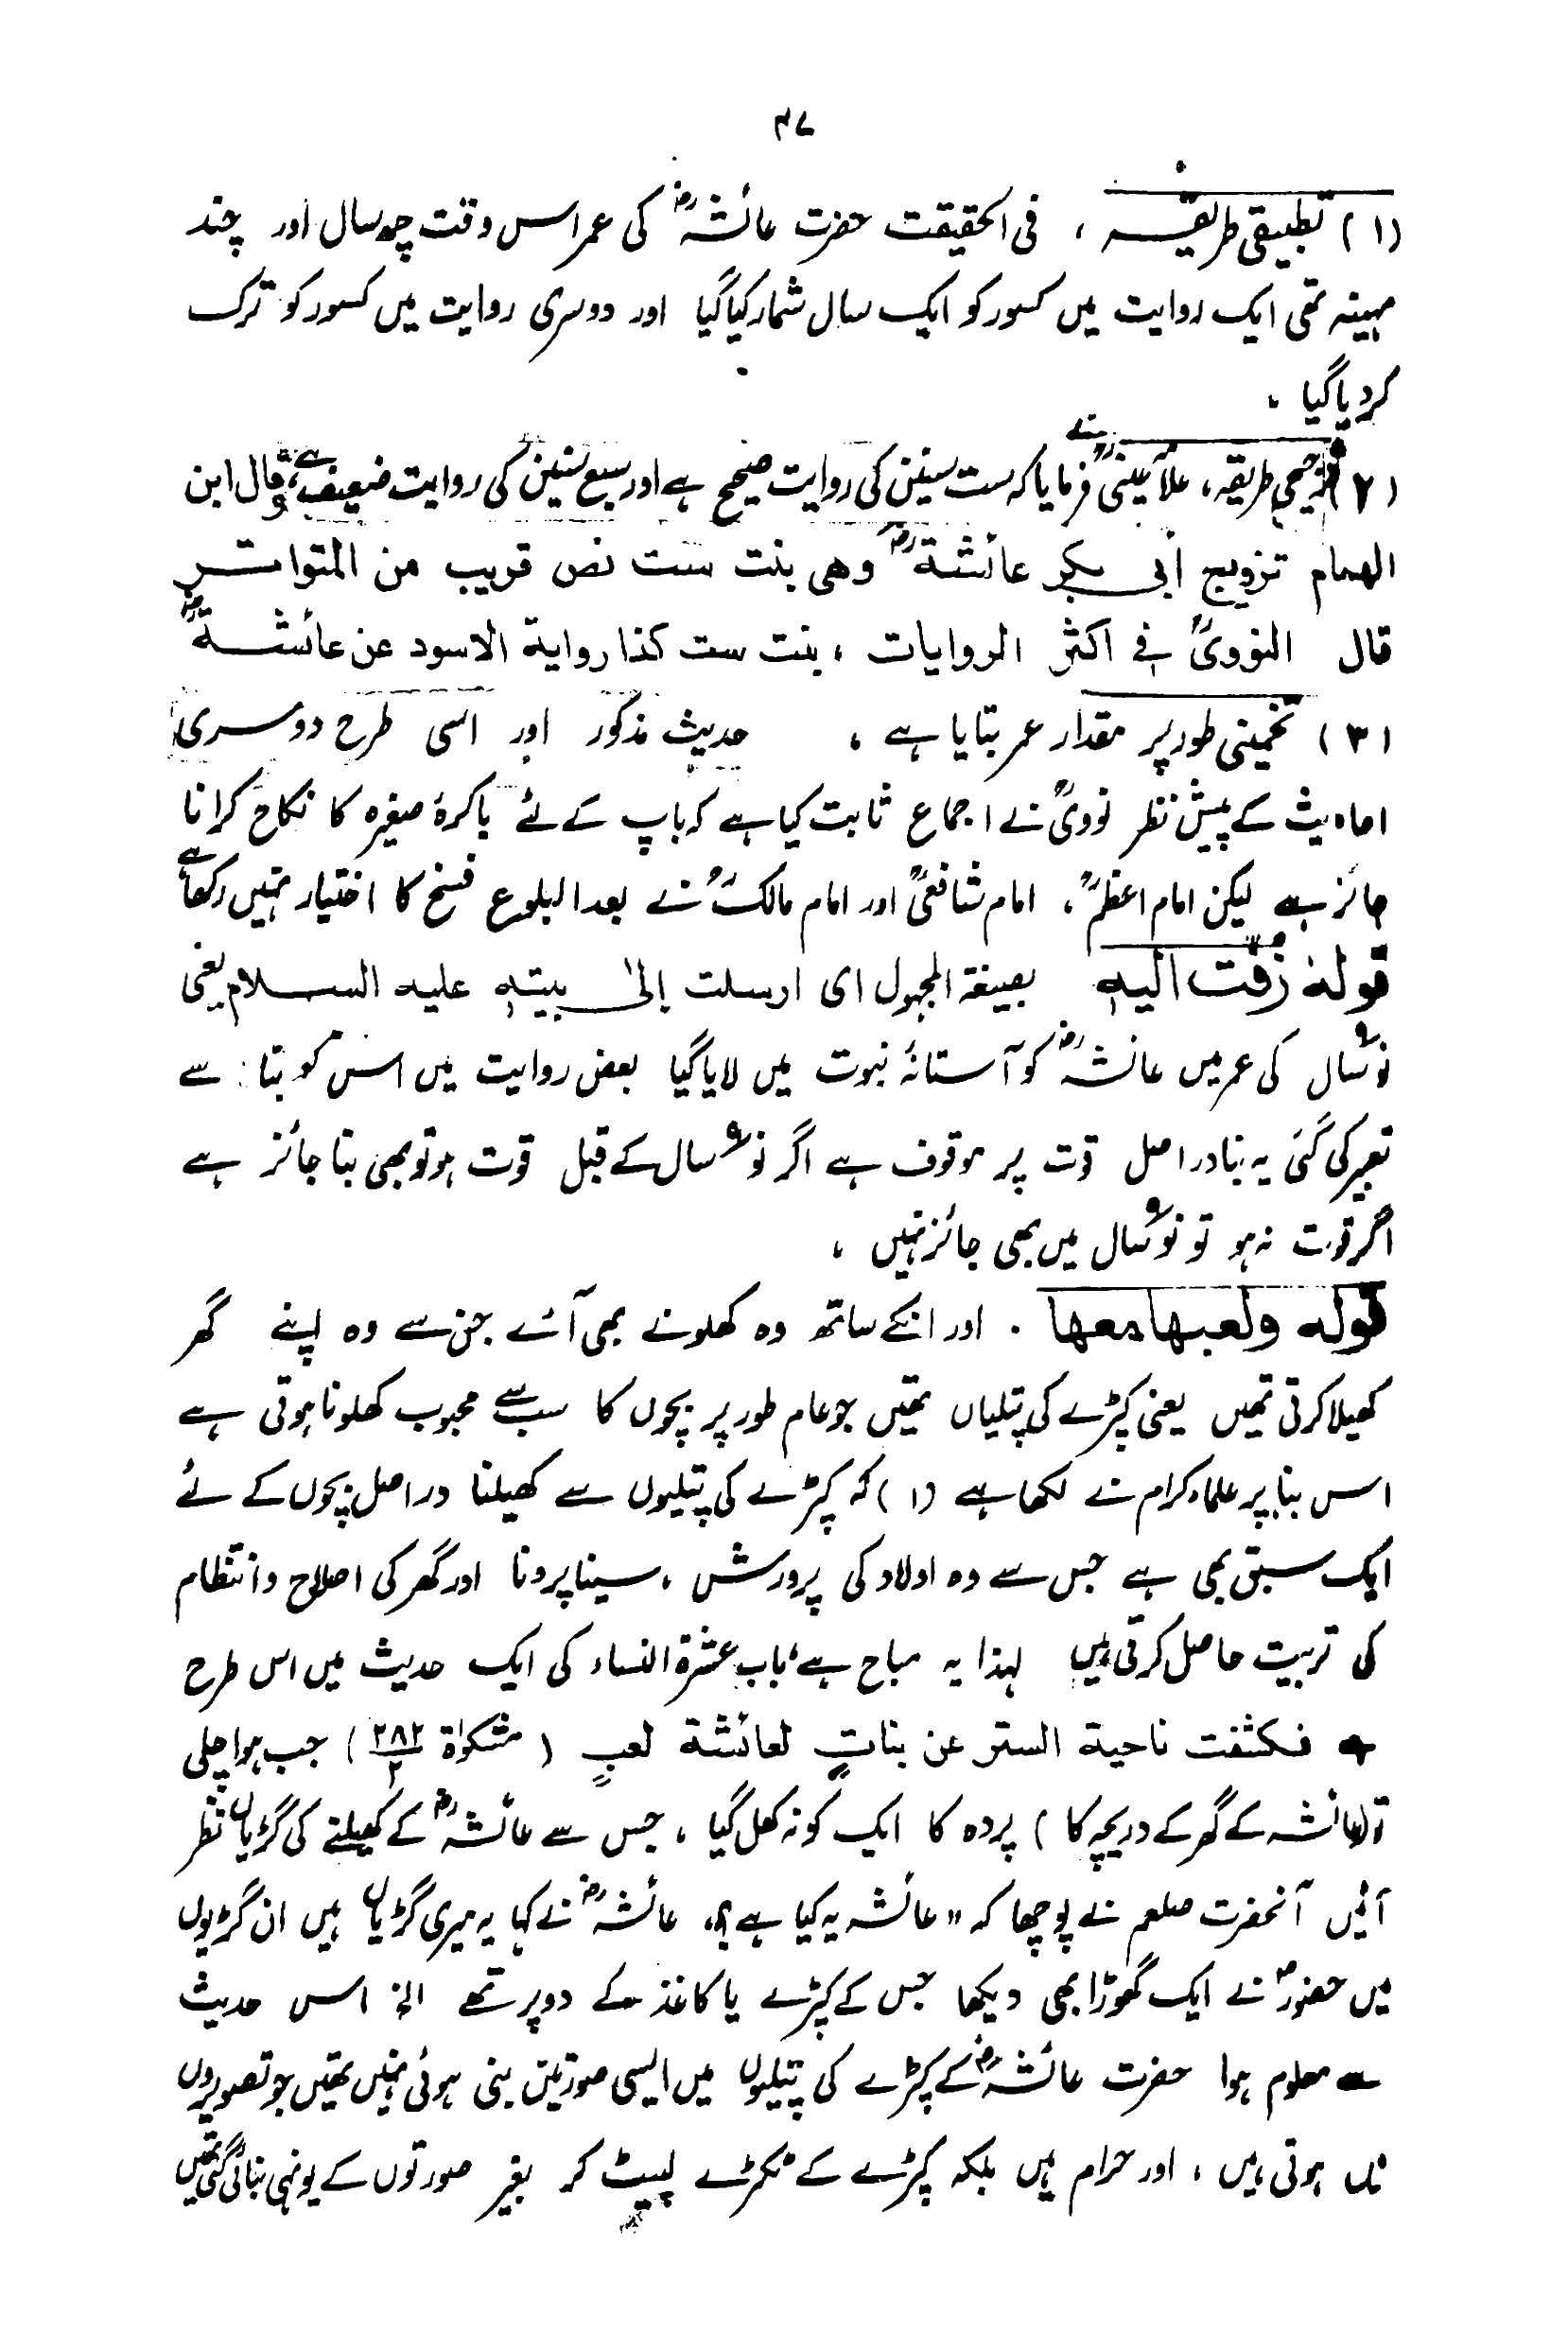 ۴۷
(۱) تطبیقی طریقہ ، فی الحقیقت حضرت عائشہؓ کی عمر اس وقت چھ سال اور چند
مہینہ تھی ایک روایت میں کسور کو ایک سال شمار کیا گیا اور دوسری روایت میں کسور کو ترک
کر دیا گیا ۔
(۲) ترجیحی طریقہ ، علامہ عینیؒ نے فرمایا کہ ست سنین کی روایت صحیح ہے اور سبع سنین کی روایت ضعیف ہے، وقال ابن
الهمام تزويج أبى بكر عائشة ؓ وهى بنت ست نص قريب من المتواتر
قال النووىؒ فى اكثر الروايات ، بنت ست كذا رواية الاسود عن عائشةؓ
(۳) تخمینی طور پر مقدار عمر بتایا ہے ، حدیث مذکور اور اسی طرح دوسری
احادیث کے پیش نظر نوویؒ نے اجماع ثابت کیا ہے کہ باپ کے لئے باکرۂ صغیرہ کا نکاح کرانا
جائز ہے لیکن امام اعظمؒ ، امام شافعیؒ اور امام مالکؒ نے بعد البلوغ فسخ کا اختیار نہیں رکھا ہے
قولہ زُفّت الیہ بصیغة المجہول ای ارسلت إلیٰ بیتہ علیہ السلام یعنی
نو۹ سال کی عمر میں عائشہؓ کو آستانۂ نبوت میں لایا گیا بعض روایت میں اس کو بنا سے
تعبیر کی گئی یہ بنا دراصل قوت پر موقوف ہے اگر نو۹ سال کے قبل قوت ہو تو بھی بنا جائز ہے
اگر قوت نہ ہو تو نو۹ سال میں بھی جائز نہیں ،
قولہ ولعبہا معہا . اور انکے ساتھ وہ کھلونے بھی آئے جن سے وہ اپنے گھر
کھیلا کرتی تھیں یعنی کپڑے کی پتلیاں تھیں جو عام طور پر بچوں کا سب سے محبوب کھلونا ہوتی ہے
اس بنا پر علماء کرام نے لکھا ہے (۱) کہ کپڑے کی پتلیوں سے کھیلنا دراصل بچوں کے لئے
ایک سبق بھی ہے جس سے وہ اولاد کی پرورش ، سینا پرونا اور گھر کی اصلاح و انتظام
کی تربیت حاصل کرتی ہیں لہذا یہ مباح ہے، باب عشرة النساء کی ایک حدیث میں اس طرح
ہے فكشفت ناحية الستر عن بناتٍ لعائشة لعبٍ ( مشکوٰۃ ۲۸۲/۲ ) جب ہوا چلی
تو (عائشہ کے گھر کے دریچہ کا ) پردہ کا ایک کونہ کھل گیا ، جس سے عائشہؓ کے کھیلنے کی گڑیاں نظر
آئیں آنحضرت صلعم نے پوچھا کہ " عائشہ یہ کیا ہے ؟، عائشہؓ نے کہا یہ میری گڑیاں ہیں ان گڑیوں
میں حضورؐ نے ایک گھوڑا بھی دیکھا جس کے کپڑے یا کاغذ کے دو پر تھے الخ اس حدیث
سے معلوم ہوا حضرت عائشہؓ کے کپڑے کی پتلیوں میں ایسی صورتیں بنی ہوئی نہیں تھیں جو تصویروں
میں ہوتی ہیں ، اور حرام ہیں بلکہ کپڑے کے ٹکڑے لپیٹ کر بغیر صورتوں کے یونہی بنائی گئی تھیں